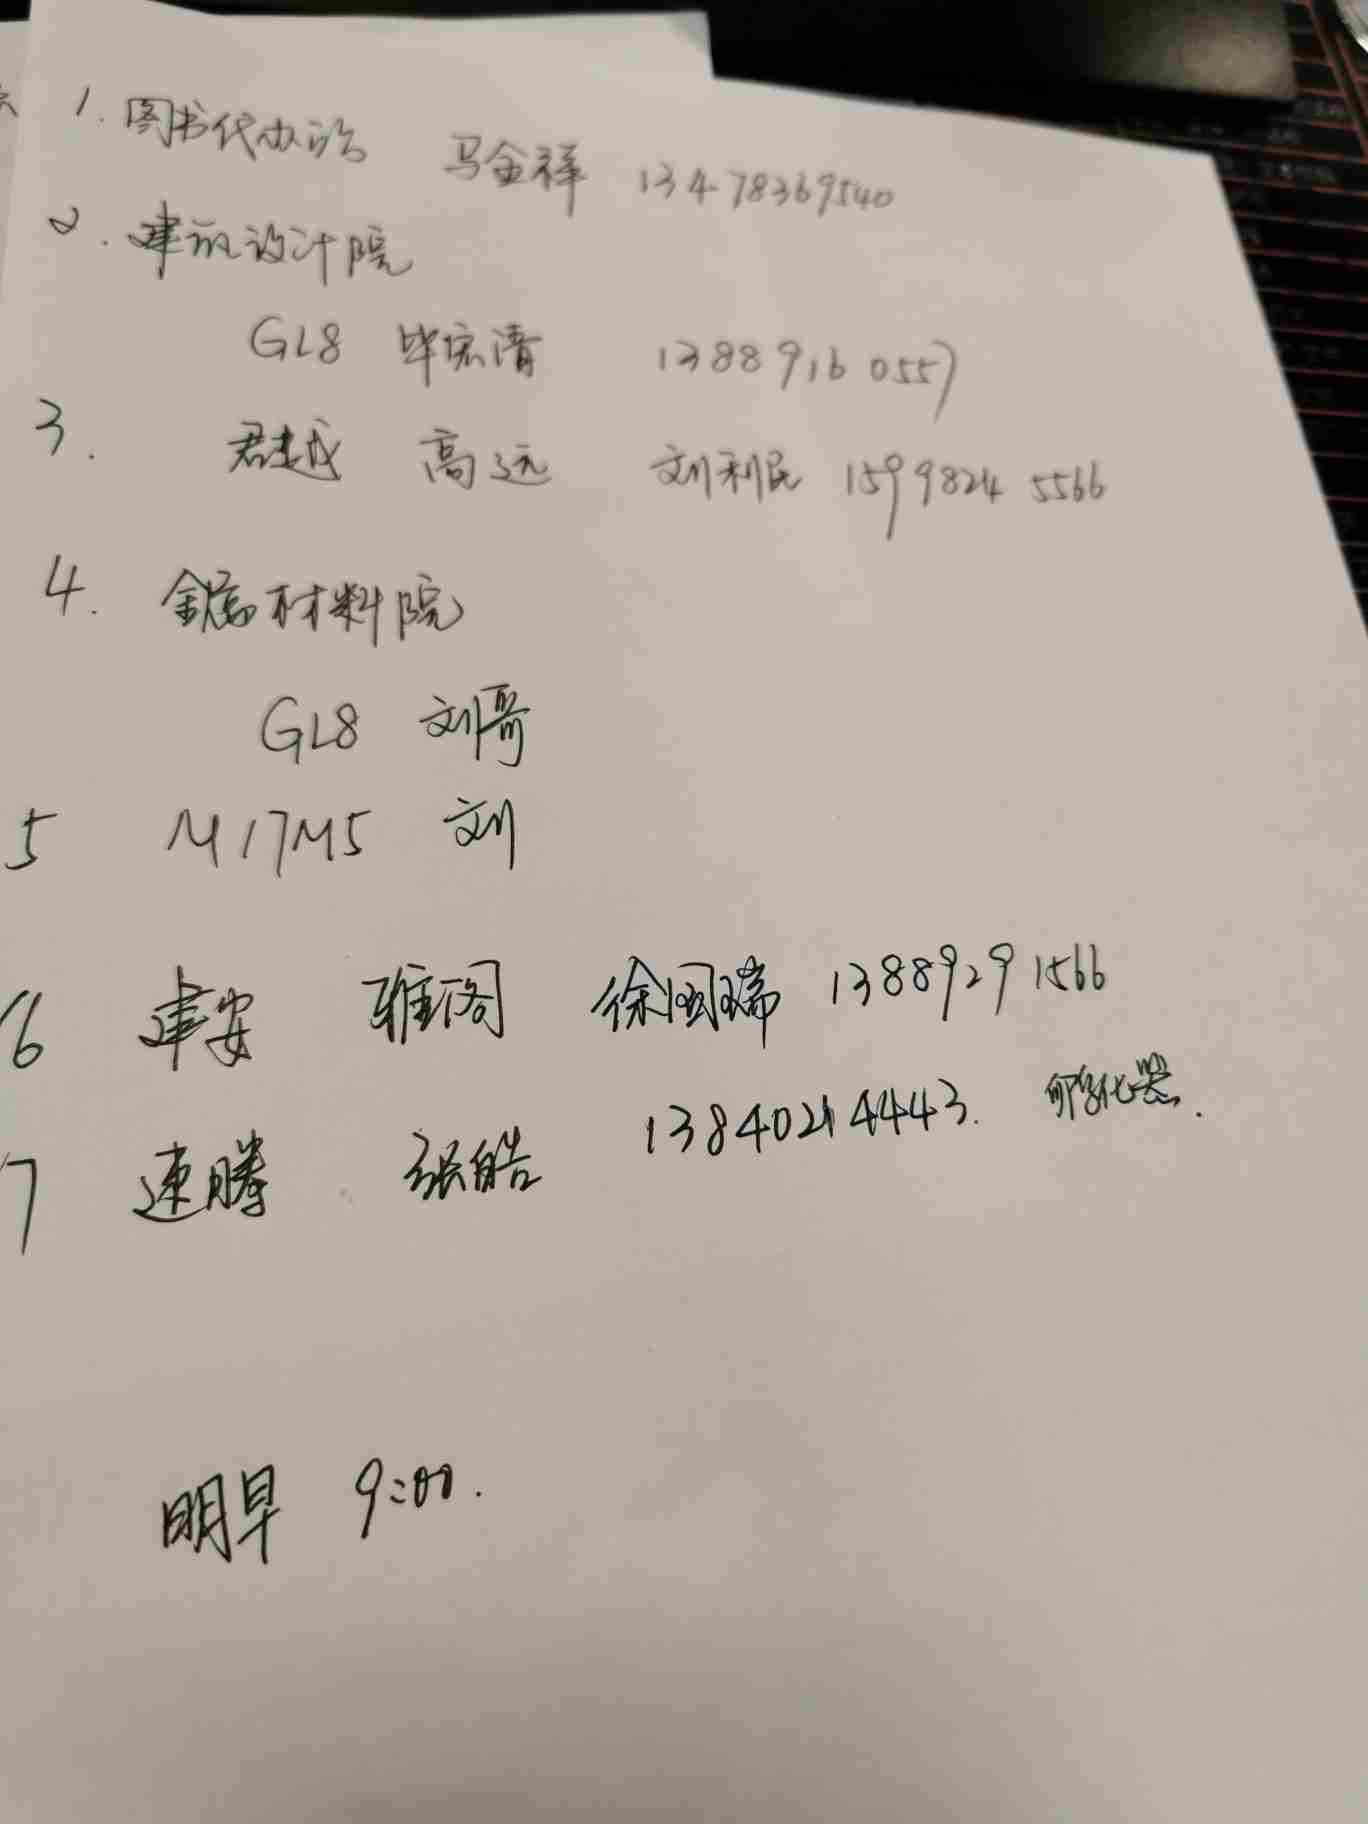 1. 图书代办站 马金祥 13478369540
2. 建筑设计院
GL8 毕宏清 13889160557
3. 君越 高远 刘利民 15998245566
4. 金属材料院
GL8 刘哥
5 M17M5 刘
6 建安 雅阁 徐国瑞 13889291566
7 速腾 张皓 13840214443. 孵化器.
明早 9:00.